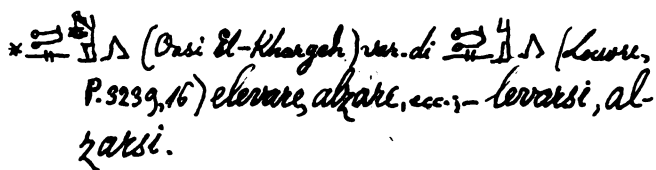 * (Oasi El-Khargeh) var. di (Louvre,
P. 3239, 16) elevare, alzare, ecc.;– levarsi, al-
zarsi.